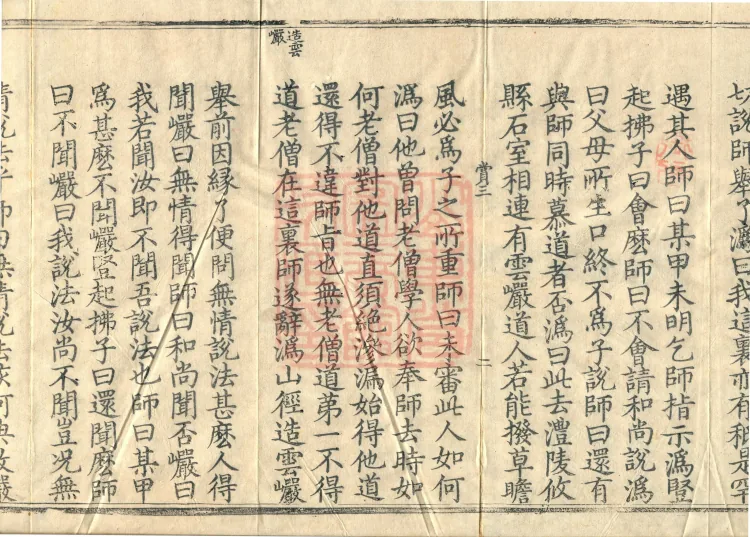 切說師舉了潙曰我這裏亦有秖是罕
遇其人師曰某甲未明乞師指示潙竪
起拂子曰會麽師曰不會請和尚說潙
曰父母所生口終不爲子說師曰還有
與師同時慕道者否潙曰此去澧陵攸
縣石室相連有雲巗道人若能撥草瞻
賞三
二
風必爲子之所重師曰未審此人如何
潙曰他曾問老僧學人欲奉師去時如
何老僧對他道直須絶滲漏始得他道
還得不違師旨也無老僧道苐一不得
道老僧在這裏師遂辭潙山徑造雲巗
造雲巗
舉前因縁了便問無情說法甚麽人得
聞巗曰無情得聞師曰和尚聞否巗曰
我若聞汝即不聞吾說法也師曰某甲
爲甚麽不聞巗竪起拂子曰還聞麽師
曰不聞巗曰我說法汝尚不聞豈況無
情說法乎師曰無情說法該何典教巗